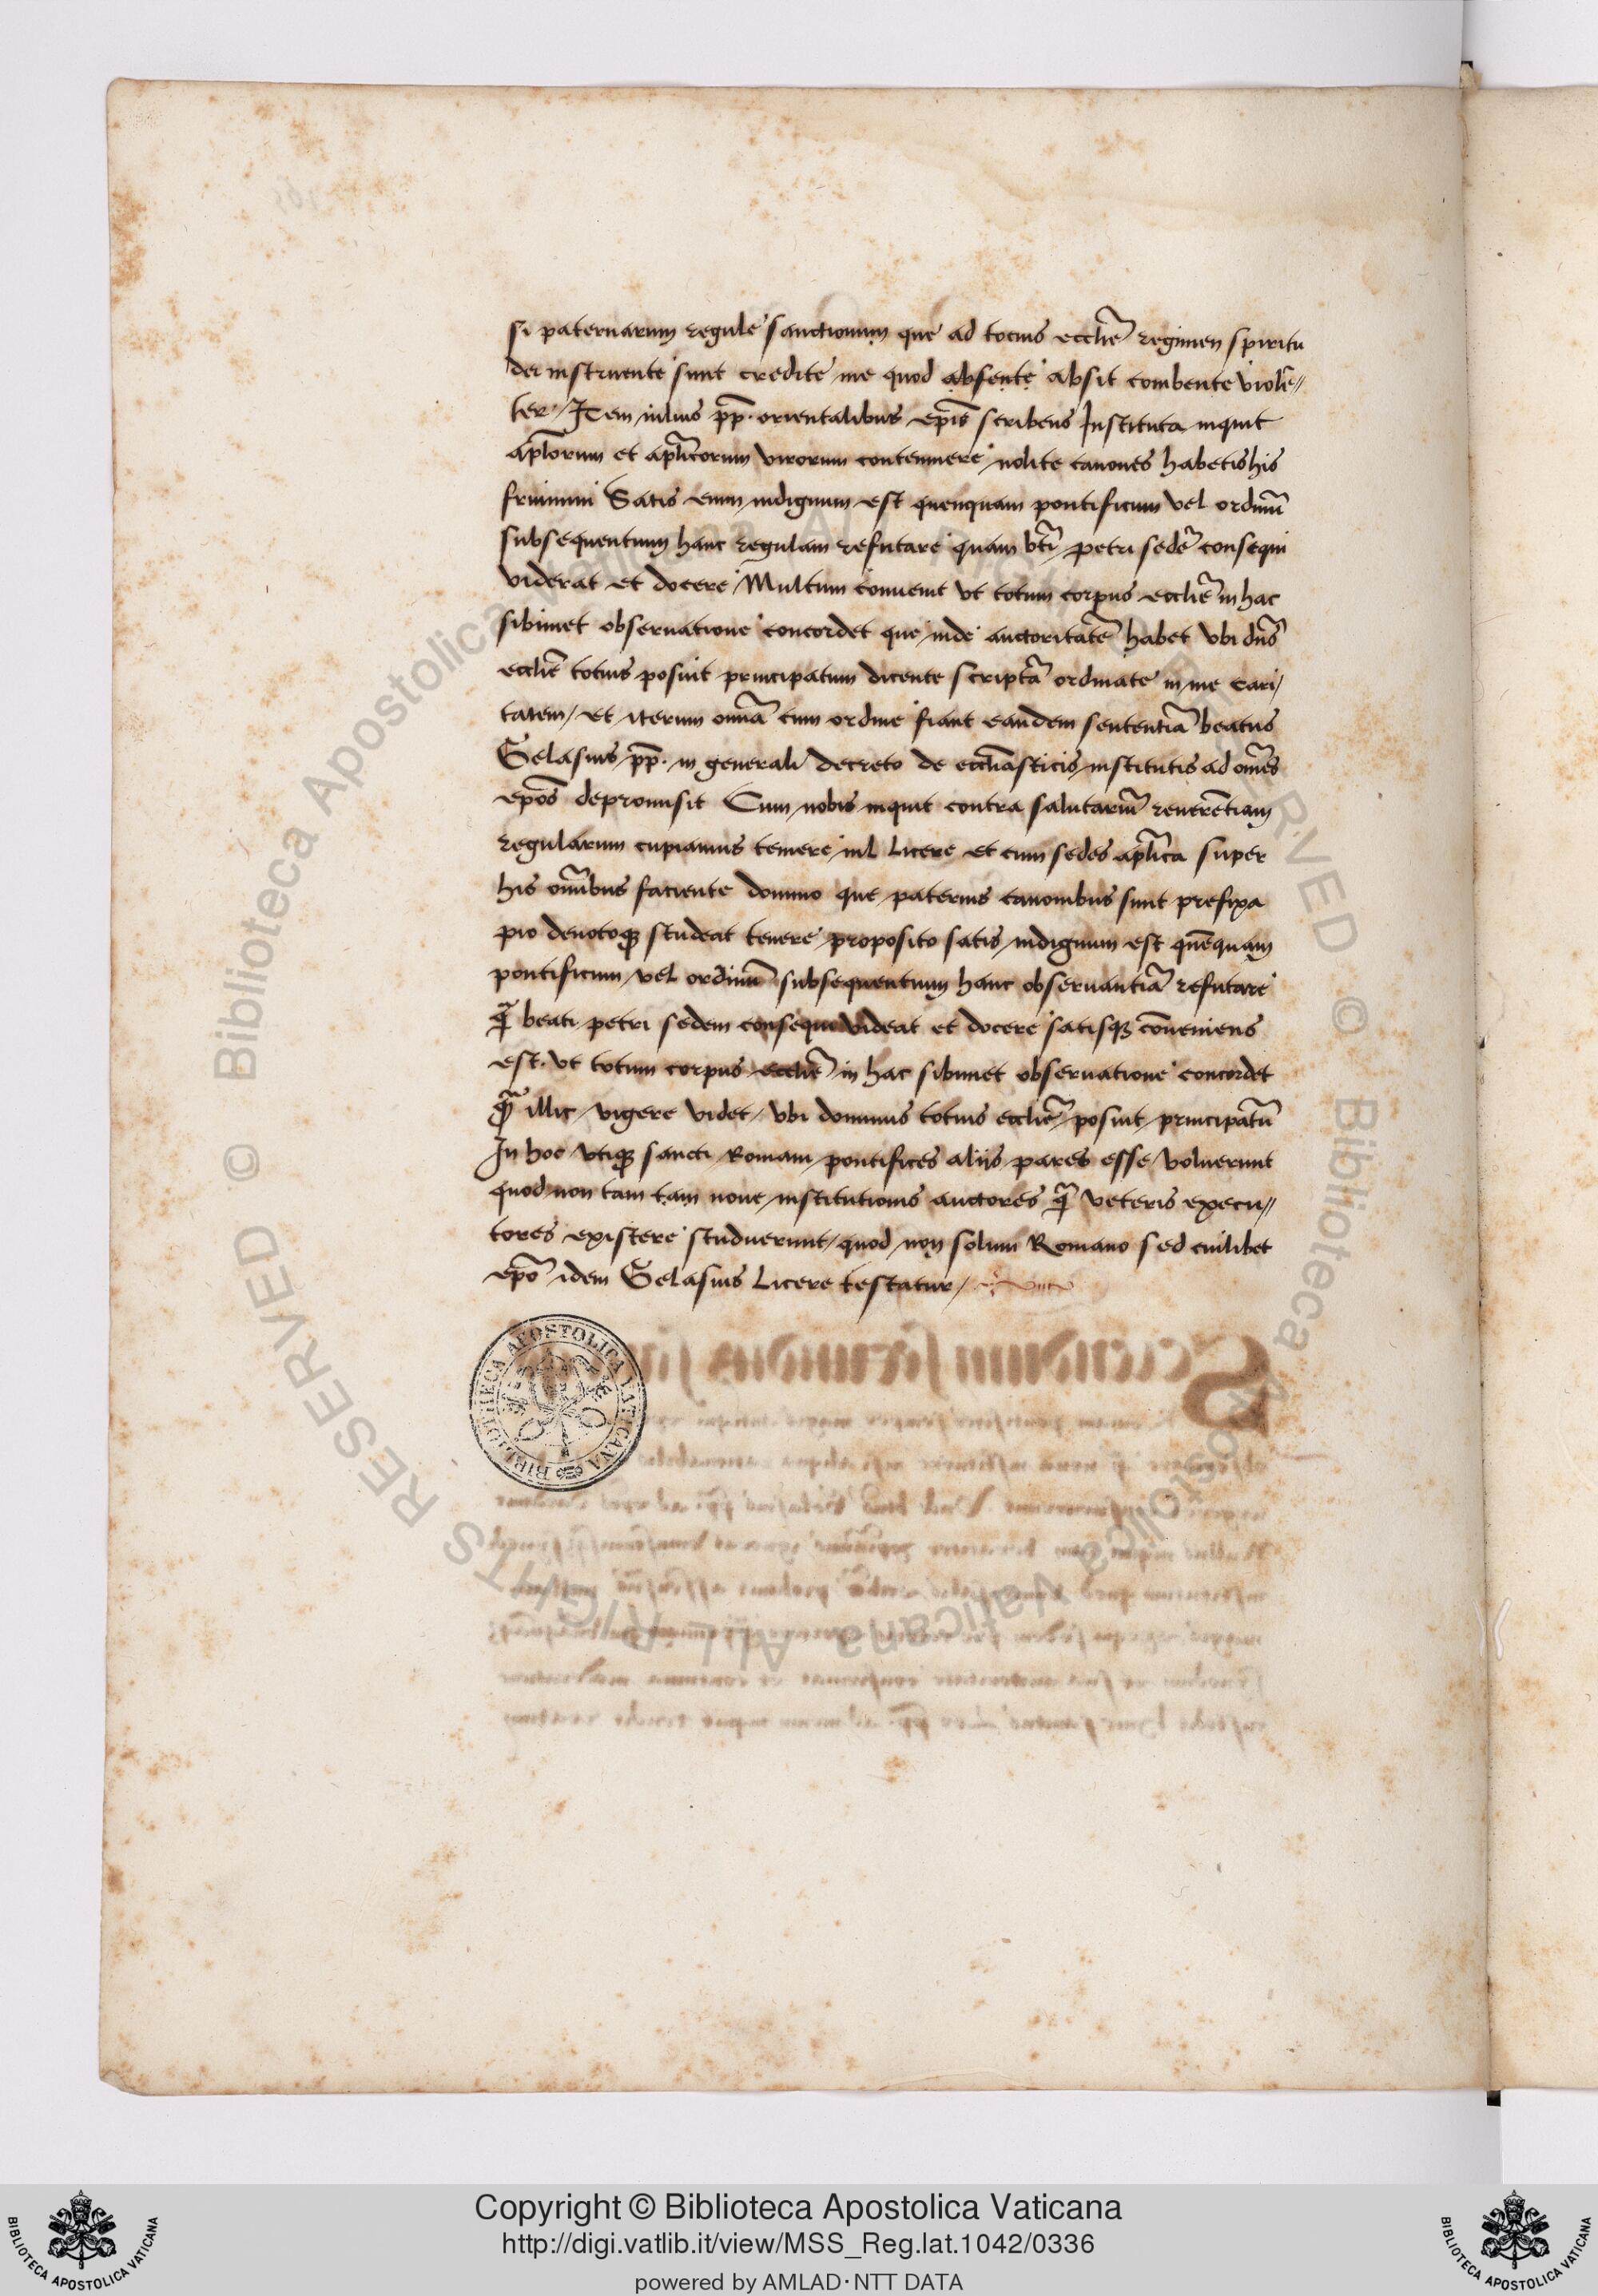 si paternarum regule sanctionum que ad tocius eccliẽ regimen spiritu
dei instruente sunt credite me quod absente absit combente viole//
ter / Item iulius pp̃. orientalibus ep̃is scribens Instituta inquit
apl̃orum et apl̃icorum virorum contemnere nolite canones habetis his
fruimini Satis enim indignum est quenquam pontificum vel ordinũ
subsequentium hanc regulam refutare quam bt̃i petri sedẽ consequi
viderat et docere Multum conuenit vt totum corpus eccliẽ in hac
sibimet obseruatione concordet que inde auctoritatẽ habet vbi dñs
eccliẽ totius posuit principatum dicente scriptã ordinate in me cari/
tatem / et iterum omĩa cum ordine fiant eandem sententiã beatus
Gelasius pp̃. in generali decreto de eccliãsticis institutis ad omẽs
ep̃os depromisit Cum nobis inquit contra salutariũ reuerẽtiam
regularum cupiamus temere nil licere et cum sedes apl̃ica super
his omĩbus faciente domino que paternis canonibus sunt prefixa
pio deuotoqꝫ studeat tenere proposito satis indignum est quẽquam
pontificum vel ordinũ subsequentium hanc obseruantiã refutare
qã beati petri sedem consequi videat et docere satisqꝫ cõueniens
est. vt totum corpus eccliẽ in hac sibimet obseruatione concordet
qã illic vigere videt vbi dominus totius eccliẽ posuit principatũ
In hoc vtiqꝫ sancti Romani pontifices aliis pares esse voluerunt
quod non tam tam noue institutionis auctores qã veteris execu//
tores existere studuerunt quod non solum Romano sed cuilibet
ep̃o idem Gelasius licere testatur /
BIBLIOTECA APOSTOLICA VATICANA
© Biblioteca Apostolica Vaticana ALL RIGHTS RESERVED
© Biblioteca Apostolica Vaticana ALL RIGHTS RESERVED
Copyright © Biblioteca Apostolica Vaticana
http://digi.vatlib.it/view/MSS_Reg.lat.1042/0336
powered by AMLAD·NTT DATA
BIBLIOTECA APOSTOLICA VATICANA
BIBLIOTECA APOSTOLICA VATICANA